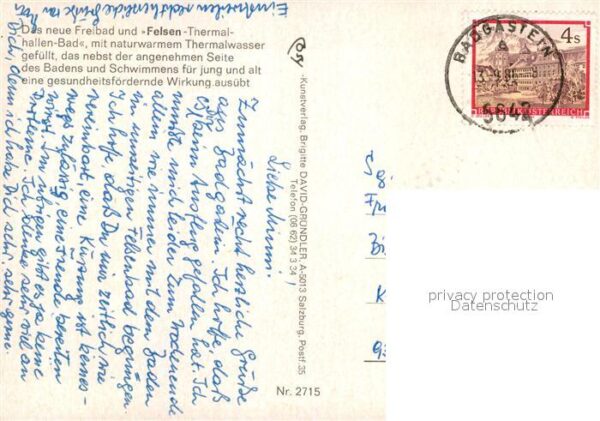 Das neue Freibad und »Felsen-Thermal-
hallen-Bad«, mit naturwarmem Thermalwasser
gefüllt, das nebst der angenehmen Seite
des Badens und Schwimmens für jung und alt
eine gesundheitsfördernde Wirkung ausübt
BADGASTEIN
5640
4 s
REPUBLIK ÖSTERREICH
-Kunstverlag, Brigitte DAVID-GRÜNDLER, A-5013 Salzburg, Postf. 35
Telefon (06 62) 34 3 34
Nr. 2715
Liebe
Zunächst recht herzliche Grüße
aus Badgastein. Ich hoffe, daß
Ausflug gefallen hat. Ich
mußte mich leider zum Wochenende
allein wie immer mit dem Baden
im Felsenbad begnügen.
Ich hoffe, daß Du mir zeitlich wie
vereinbart, eine Kürzung ist keines-
wegs zulässig eine Freude bereiten
wirst. Im übrigen gibt es ja keine
Probleme. Ich denke sehr viel an
Dich, denn ich habe Dich sehr, sehr gerne.
privacy protection
Datenschutz